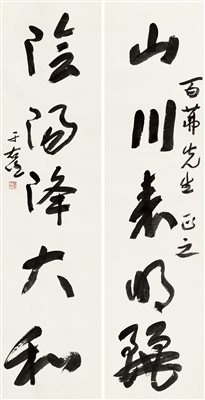 百茀先生正之
山川表明麗
陰陽降大和
于右任